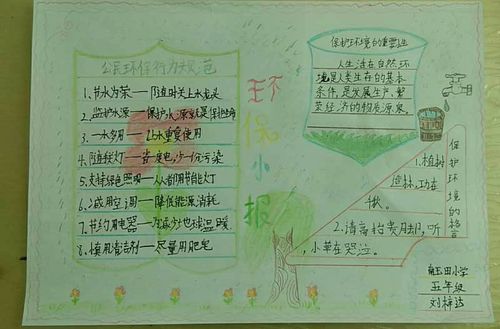 公民环保行为规范
1.节水为荣——随时关上水龙头
2.监护水源——保护水源就是保护生命
3.一水多用——让水重复使用
4.随手关灯——省一度电,少一份污染
5.支持绿色照明——人人都用节能灯
6.减用空调——降低能源消耗
7.节约用电器——为减少地球温暖
8.慎用清洁剂——尽量用肥皂
环保小报
保护环境的重要性
人生活在自然环
境是人类生存的基本
条件,是发展生产、繁
荣经济的物质源泉。
保护环境的格言
1.植树
造林,功在
千秋。
2.请高抬贵脚,听
,小草在哭泣。
五年级